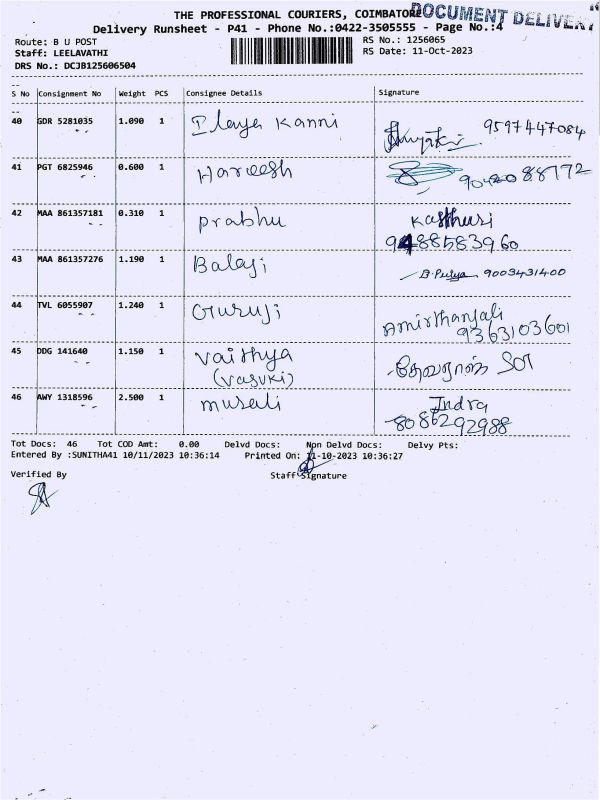 THE PROFESSIONAL COURIERS, COIMBATORE
DOCUMENT DELIVERY
Delivery Runsheet - P41 - Phone No.:0422-3505555 - Page No.:4
Route: B U POST
RS No.: 1256065
Staff: LEELAVATHI
RS Date: 11-Oct-2023
DRS No.: DCJB125606504
S No Consignment No Weight PCS Consignee Details Signature
40 GDR 5281035 1.090 1 Ilaya Kanni 9597447084
41 PGT 6825946 0.600 1 Hareesh
42 MAA 861357181 0.310 1 prabhu Kasthuri
9488583960
43 MAA 861357276 1.190 1 Balaji B. Puiya 9003431400
44 TVL 6055907 1.240 1 Guruji Amirthanjali
9363103601
45 DDG 141640 1.150 1 Vaithya
(Vasuki)
தேவராஜ்
46 AWY 1318596 2.500 1 murali Indra
8086292988
Tot Docs: 46 Tot COD Amt: 0.00 Delvd Docs: Non Delvd Docs: Delvy Pts:
Entered By :SUNITHA41 10/11/2023 10:36:14 Printed On: 11-10-2023 10:36:27
Verified By Staff Signature